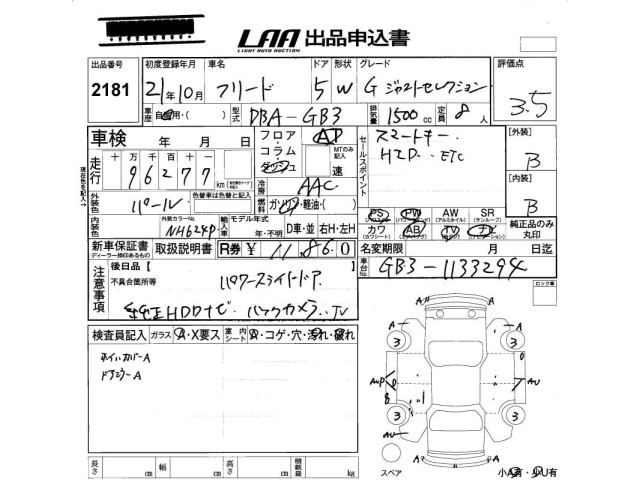 LAA 出品申込書
LIGHT AUTO AUCTION
出品番号 初度登録年月 車名 ドア 形状 グレード 評価点
2181 21年10月 フリード 5 W G ジャストセレクション 3.5
車歴 自家用・( ) 型式 DBA-GB3 排気量 1500cc 定員 8人
車検 年 月 日 フロア・コラム・ダッシュ AT セールスポイント スマートキー・ [外装]
MTのみ記入 速 HID・ETC B
走行 十万千百十 96277 km
現在の色を記入 色替車は色替と記入 冷房 AAC [内装]
外装色 パール 燃料 ガ・ハ・軽油・( ) B
内装色 外装カラーNo. NH624P 輸入車 モデル年式 年・不明 D車・並 右H・左H
PS PW AW SR
(アルミホイル) (サンルーフ)
カワ AB TV ナビ 純正品のみ丸印
(カワシート)
新車保証書 取扱説明書 R券 ¥ 11,860 名変期限 月 日迄
ディーラー捺印あるもの
車台No. GB3-1133294
注意事項 後日品【 】 ロック車
不具合箇所等 パワースライドドア.
純正HDDナビ・バックカメラ.TV
検査員記入 ガラス A・X要ス 室内シート A・コゲ・穴・汚れ・破れ
ホイルカバーA
ドアミラーA
A A
A A
3 3
AU
3 3
AU A
A A
長さ cm 幅 cm 高さ cm 積載量 kg
スペア 小A有・小U有